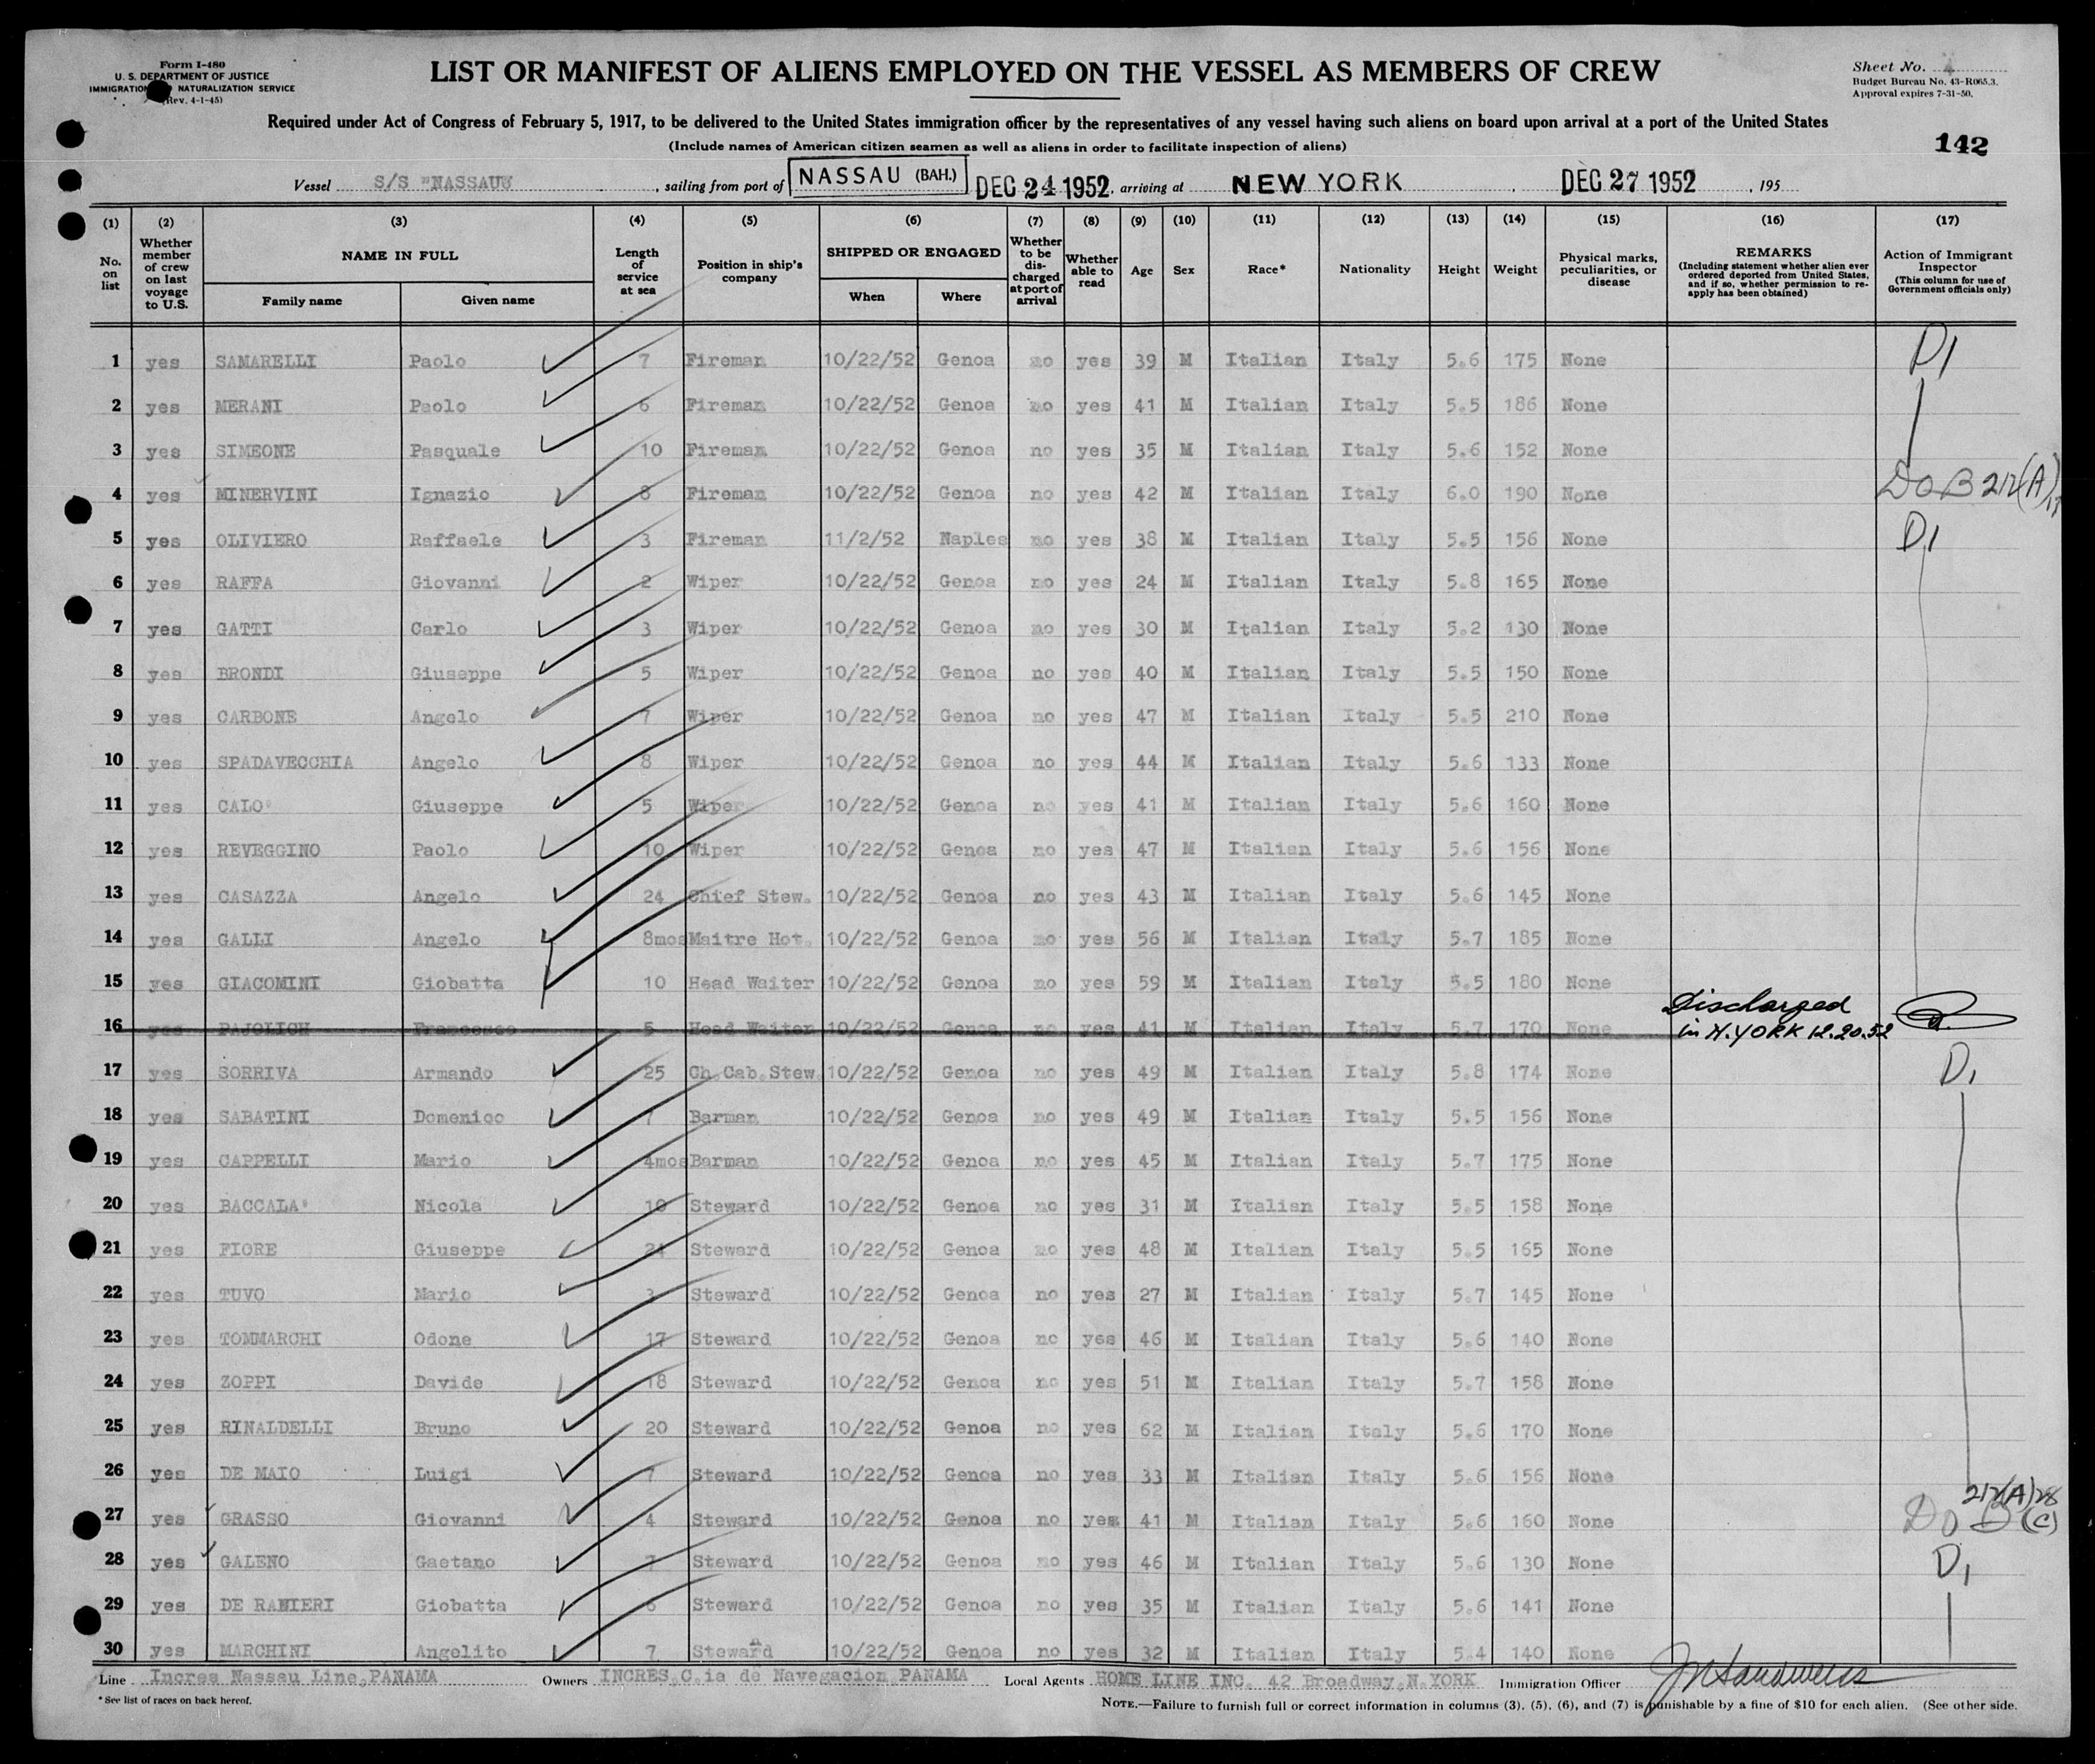 Form I-480
U. S. DEPARTMENT OF JUSTICE
IMMIGRATION NATURALIZATION SERVICE
(Rev. 4-1-45)
LIST OR MANIFEST OF ALIENS EMPLOYED ON THE VESSEL AS MEMBERS OF CREW
Sheet No. 4
Budget Bureau No. 43-R065.3.
Approval expires 7-31-50.
Required under Act of Congress of February 5, 1917, to be delivered to the United States immigration officer by the representatives of any vessel having such aliens on board upon arrival at a port of the United States
(Include names of American citizen seamen as well as aliens in order to facilitate inspection of aliens)
142
Vessel S/S "NASSAU", sailing from port of NASSAU (BAH.) DEC 24 1952, arriving at NEW YORK, DEC 27 1952, 195
(1) (2) (3) (4) (5) (6) (7) (8) (9) (10) (11) (12) (13) (14) (15) (16) (17)
No. on list
Whether member of crew on last voyage to U.S.
NAME IN FULL
Family name Given name
Length of service at sea
Position in ship's company
SHIPPED OR ENGAGED
When Where
Whether to be discharged at port of arrival
Whether able to read
Age Sex Race* Nationality Height Weight
Physical marks, peculiarities, or disease
REMARKS
(Including statement whether alien ever ordered deported from United States, and if so, whether permission to re-apply has been obtained)
Action of Immigrant Inspector
(This column for use of Government officials only)
1 yes SAMARELLI Paolo 7 Fireman 10/22/52 Genoa no yes 39 M Italian Italy 5.6 175 None D1
2 yes MERANI Paolo 6 Fireman 10/22/52 Genoa no yes 41 M Italian Italy 5.5 186 None
3 yes SIMEONE Pasquale 10 Fireman 10/22/52 Genoa no yes 35 M Italian Italy 5.6 152 None
4 yes MINERVINI Ignazio 8 Fireman 10/22/52 Genoa no yes 42 M Italian Italy 6.0 190 None DOB 212(A)
5 yes OLIVIERO Raffaele 3 Fireman 11/2/52 Naples no yes 38 M Italian Italy 5.5 156 None D1
6 yes RAFFA Giovanni 2 Wiper 10/22/52 Genoa no yes 24 M Italian Italy 5.8 165 None
7 yes GATTI Carlo 3 Wiper 10/22/52 Genoa no yes 30 M Italian Italy 5.2 130 None
8 yes BRONDI Giuseppe 5 Wiper 10/22/52 Genoa no yes 40 M Italian Italy 5.5 150 None
9 yes CARBONE Angelo 7 Wiper 10/22/52 Genoa no yes 47 M Italian Italy 5.5 210 None
10 yes SPADAVECCHIA Angelo 8 Wiper 10/22/52 Genoa no yes 44 M Italian Italy 5.6 133 None
11 yes CALO' Giuseppe 5 Wiper 10/22/52 Genoa no yes 41 M Italian Italy 5.6 160 None
12 yes REVEGGINO Paolo 10 Wiper 10/22/52 Genoa no yes 47 M Italian Italy 5.6 156 None
13 yes CASAZZA Angelo 24 Chief Stew. 10/22/52 Genoa no yes 43 M Italian Italy 5.6 145 None
14 yes GALLI Angelo 8mos Maitre Hot. 10/22/52 Genoa no yes 56 M Italian Italy 5.7 185 None
15 yes GIACOMINI Giobatta 10 Head Waiter 10/22/52 Genoa no yes 59 M Italian Italy 5.5 180 None
16 yes PAJOLICH Francesco 5 Head Waiter 10/22/52 Genoa no yes 41 M Italian Italy 5.7 170 None Discharged in N.YORK 12.20.52
17 yes SORRIVA Armando 25 Ch.Cab.Stew. 10/22/52 Genoa no yes 49 M Italian Italy 5.8 174 None D1
18 yes SABATINI Domenico 7 Barman 10/22/52 Genoa no yes 49 M Italian Italy 5.5 156 None
19 yes CAPPELLI Mario 4mos Barman 10/22/52 Genoa no yes 45 M Italian Italy 5.7 175 None
20 yes BACCALA' Nicola 10 Steward 10/22/52 Genoa no yes 31 M Italian Italy 5.5 158 None
21 yes FIORE Giuseppe 24 Steward 10/22/52 Genoa no yes 48 M Italian Italy 5.5 165 None
22 yes TUVO Mario 3 Steward 10/22/52 Genoa no yes 27 M Italian Italy 5.7 145 None
23 yes TOMMARCHI Odone 17 Steward 10/22/52 Genoa no yes 46 M Italian Italy 5.6 140 None
24 yes ZOPPI Davide 18 Steward 10/22/52 Genoa no yes 51 M Italian Italy 5.7 158 None
25 yes RINALDELLI Bruno 20 Steward 10/22/52 Genoa no yes 62 M Italian Italy 5.6 170 None
26 yes DE MAIO Luigi 7 Steward 10/22/52 Genoa no yes 33 M Italian Italy 5.6 156 None
27 yes GRASSO Giovanni 4 Steward 10/22/52 Genoa no yes 41 M Italian Italy 5.6 160 None DOB 212(A)28 (C)
28 yes GALENO Gaetano 7 Steward 10/22/52 Genoa no yes 46 M Italian Italy 5.6 130 None D1
29 yes DE RANIERI Giobatta 6 Steward 10/22/52 Genoa no yes 35 M Italian Italy 5.6 141 None
30 yes MARCHINI Angelito 7 Steward 10/22/52 Genoa no yes 32 M Italian Italy 5.4 140 None
Line Incres Nassau Line, PANAMA Owners INCRES, C.ia de Navegacion PANAMA Local Agents HOME LINE INC. 42 Broadway, N.YORK Immigration Officer
* See list of races on back hereof.
NOTE.—Failure to furnish full or correct information in columns (3), (5), (6), and (7) is punishable by a fine of $10 for each alien. (See other side.